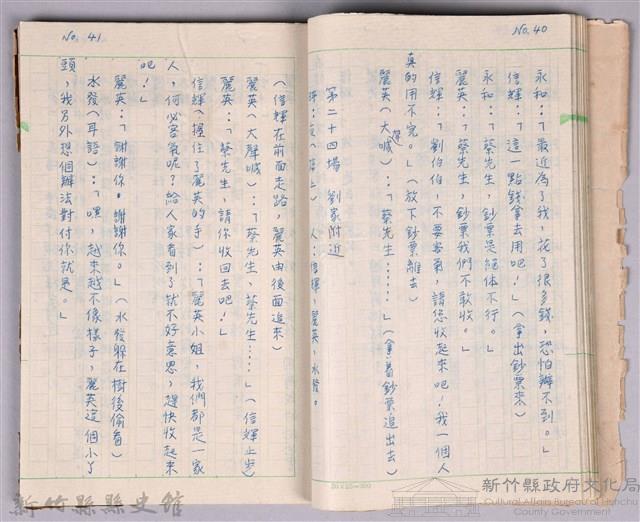 No. 40
永和：「最近為了我，花了很多錢，恐怕辦不到。」
信輝：「這一點錢拿去用吧！」（拿出鈔票來）
永和：「蔡先生，鈔票是絕体不行。」
麗英：「蔡先生，鈔票我們不敢收。」
信輝：「劉伯伯，不要客氣，請您收起來吧！我一個人
真的用不完。」（放下鈔票離去）
麗英（大聲喊）：「蔡先生……」（拿着鈔票追出去）
第二十四場 劉家附近
人：信輝，麗英，水發。
No. 41
（信輝在前面走路，麗英由後面追來）
麗英（大聲喊）：「蔡先生，蔡先生……」（信輝止步）
麗英：「蔡先生，請你收回去吧！」
信輝（握住了麗英的手）：「麗英小姐，我們都是一家
人，何必客氣呢？給人家看到了就不好意思，趕快收起來
吧！」
麗英：「謝謝你。謝謝你。」（水發躲在樹後偷看）
水發（耳語）：「嘿，越來越不像樣子，麗英這個小丫
頭，我另外想個辦法對付你就是。」
20×25=500
新竹縣縣史館
新竹縣政府文化局
Cultural Affairs Bureau of Hsinchu
County Government